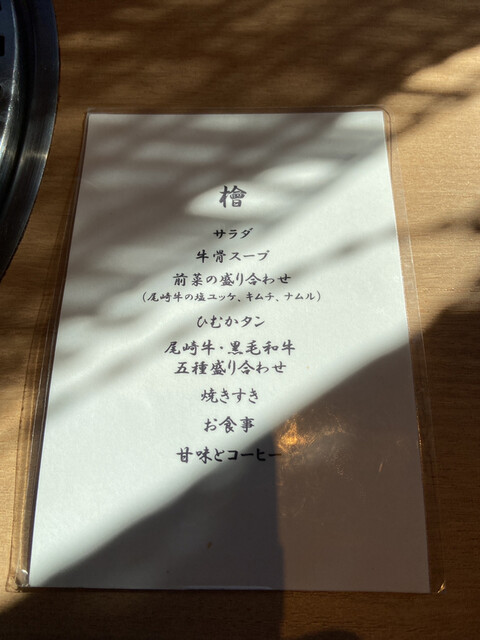 檜
サラダ
牛骨スープ
前菜の盛り合わせ
(尾崎牛の塩ユッケ、キムチ、ナムル)
ひむかタン
尾崎牛・黒毛和牛
五種盛り合わせ
焼きすき
お食事
甘味とコーヒー